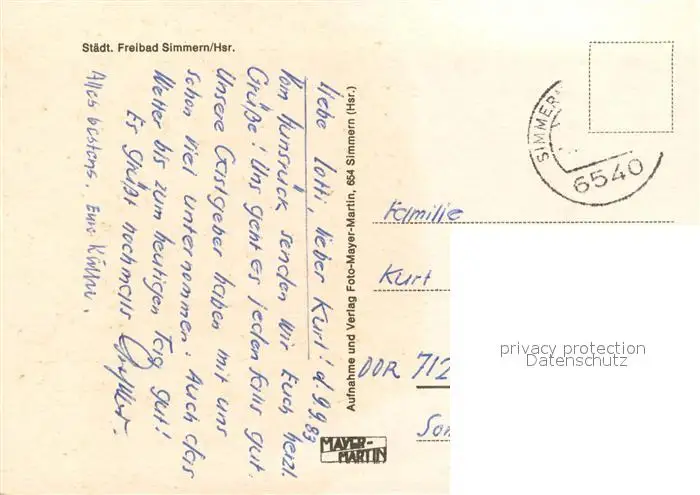 Städt. Freibad Simmern/Hsr.
Liebe Lotti, lieber Kurt! d. 9.9.83
Vom Hunsrück senden wir Euch herzl.
Grüße! Uns geht es jedenfalls gut.
Unsere Gastgeber haben mit uns
schon viel unternommen. Auch das
Wetter bis zum heutigen Tag gut!
Es grüßt nochmals
Alles bestens. Eure
Aufnahme und Verlag Foto-Mayer-Martin, 654 Simmern (Hsr.)
MAYER-
MARTIN
SIMMER
6540
Familie
Kurt
DDR 712
Son
privacy protection
Datenschutz